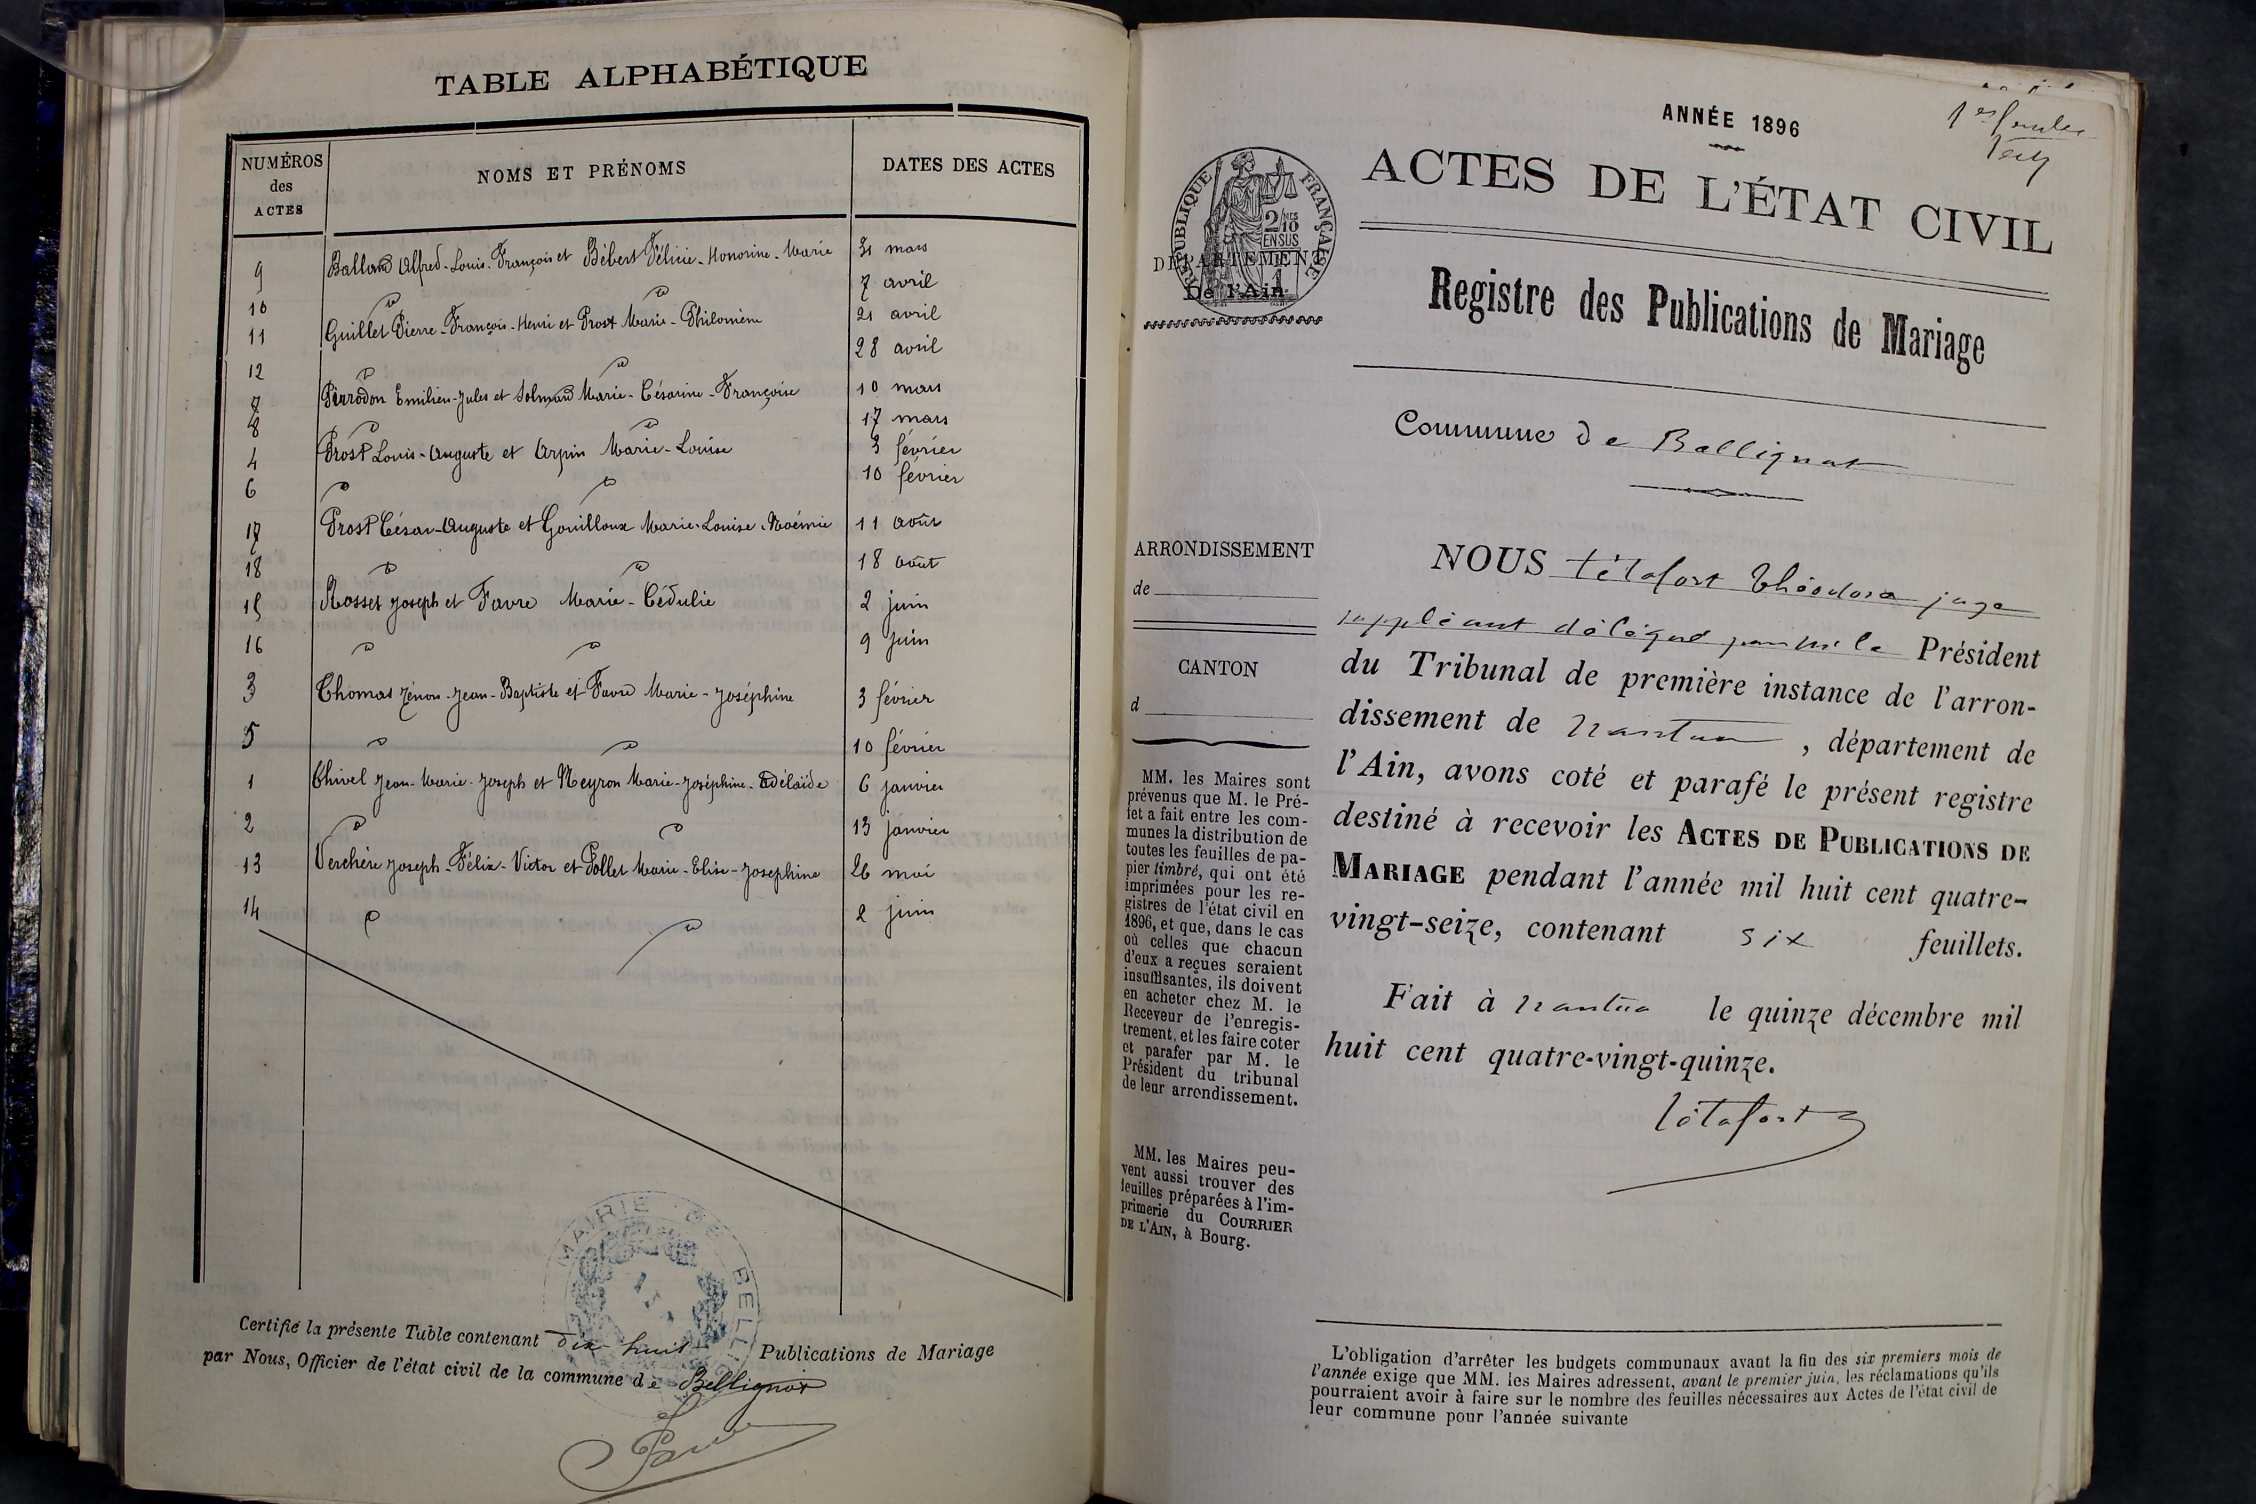 TABLE ALPHABÉTIQUE
NUMÉROS des ACTES
NOMS ET PRÉNOMS
DATES DES ACTES
9 Balland Alfred-Louis-François et Bébert Félicie-Honorine-Marie 31 mars
10 d d 7 avril
11 Guillet Pierre-François-Henri et Prost Marie-Philomène 21 avril
12 d d 28 avril
7 Pirrodon Emilien-Jules et Solmand Marie-Césarine-Françoise 10 mars
8 d d 17 mars
4 Prost Louis-Auguste et Arpin Marie-Louise 3 février
6 d d 10 février
17 Prost César-Auguste et Gouilloux Marie-Louise-Noémie 11 août
18 d d 18 août
15 Rosset Joseph et Favre Marie-Cédulie 2 juin
16 d d 9 juin
3 Thomas Zénon-Jean-Baptiste et Favre Marie-Joséphine 3 février
5 d d 10 février
1 Chivel Jean-Marie-Joseph et Neyron Marie-Joséphine-Adélaïde 6 janvier
2 d d 13 janvier
13 Verchère Joseph-Félix-Victor et Pollet Marie-Elise-Josephine 26 mai
14 d d 2 juin
MAIRIE DE BELL
Certifié la présente Table contenant dix-huit Publications de Mariage
par Nous, Officier de l'état civil de la commune de Bellignat
ANNÉE 1896
ACTES DE L'ÉTAT CIVIL
RÉPUBLIQUE FRANÇAISE
2/10 MES
EN SUS
DÉPARTEMENT
De l'Ain
Registre des Publications de Mariage
Commune de Bellignat
ARRONDISSEMENT
de
CANTON
d
MM. les Maires sont
prévenus que M. le Pré-
fet a fait entre les com-
munes la distribution de
toutes les feuilles de pa-
pier timbré, qui ont été
imprimées pour les re-
gistres de l'état civil en
1896, et que, dans le cas
où celles que chacun
d'eux a reçues seraient
insuffisantes, ils doivent
en acheter chez M. le
Receveur de l'enregis-
trement, et les faire coter
et parafer par M. le
Président du tribunal
de leur arrondissement.
MM. les Maires peu-
vent aussi trouver des
feuilles préparées à l'im-
primerie du COURRIER
DE L'AIN, à Bourg.
NOUS Létafort Théodore juge
suppléant délégué par Mr le Président
du Tribunal de première instance de l'arron-
dissement de Nantua, département de
l'Ain, avons coté et parafé le présent registre
destiné à recevoir les ACTES DE PUBLICATIONS DE
MARIAGE pendant l'année mil huit cent quatre-
vingt-seize, contenant six feuillets.
Fait à Nantua le quinze décembre mil
huit cent quatre-vingt-quinze.
Létafort
L'obligation d'arrêter les budgets communaux avant la fin des six premiers mois de
l'année exige que MM. les Maires adressent, avant le premier juin, les réclamations qu'ils
pourraient avoir à faire sur le nombre des feuilles nécessaires aux Actes de l'état civil de
leur commune pour l'année suivante